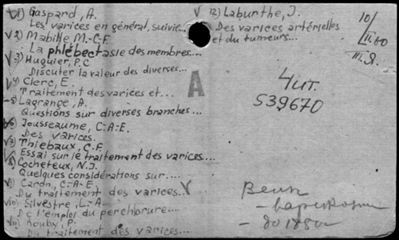 V 1) Gaspard, A.
Les varices en général, suivie...
V 2) Mabille, M.-C-F.
La phlébectasie des membres...
V 3) Huguier, P.C
Discuter la valeur des diverses...
V 4) Clerc, E.
Traitement des varices et...
5) Lagrange, A.
Questions sur diverses branches...
6) Jousseaume, C.-A-E.
Des varices.
7) Thiebaux, C.-F.
Essai sur le traitement des varices...
8) Cocheteux, N.J.
Quelques considérations sur....
9) C.-A-E.
Du traitement des varices V
10) Silvestre, L.-A.
De l'emploi du perchlorure...
11) Houby, P.
Du traitement des varices...
V 12) Laburthe, J.
Des varices artérielles
et du tumeurs...
10/
II.60
A
4 ит.
539670
Вены
— варикозы
— до 1850